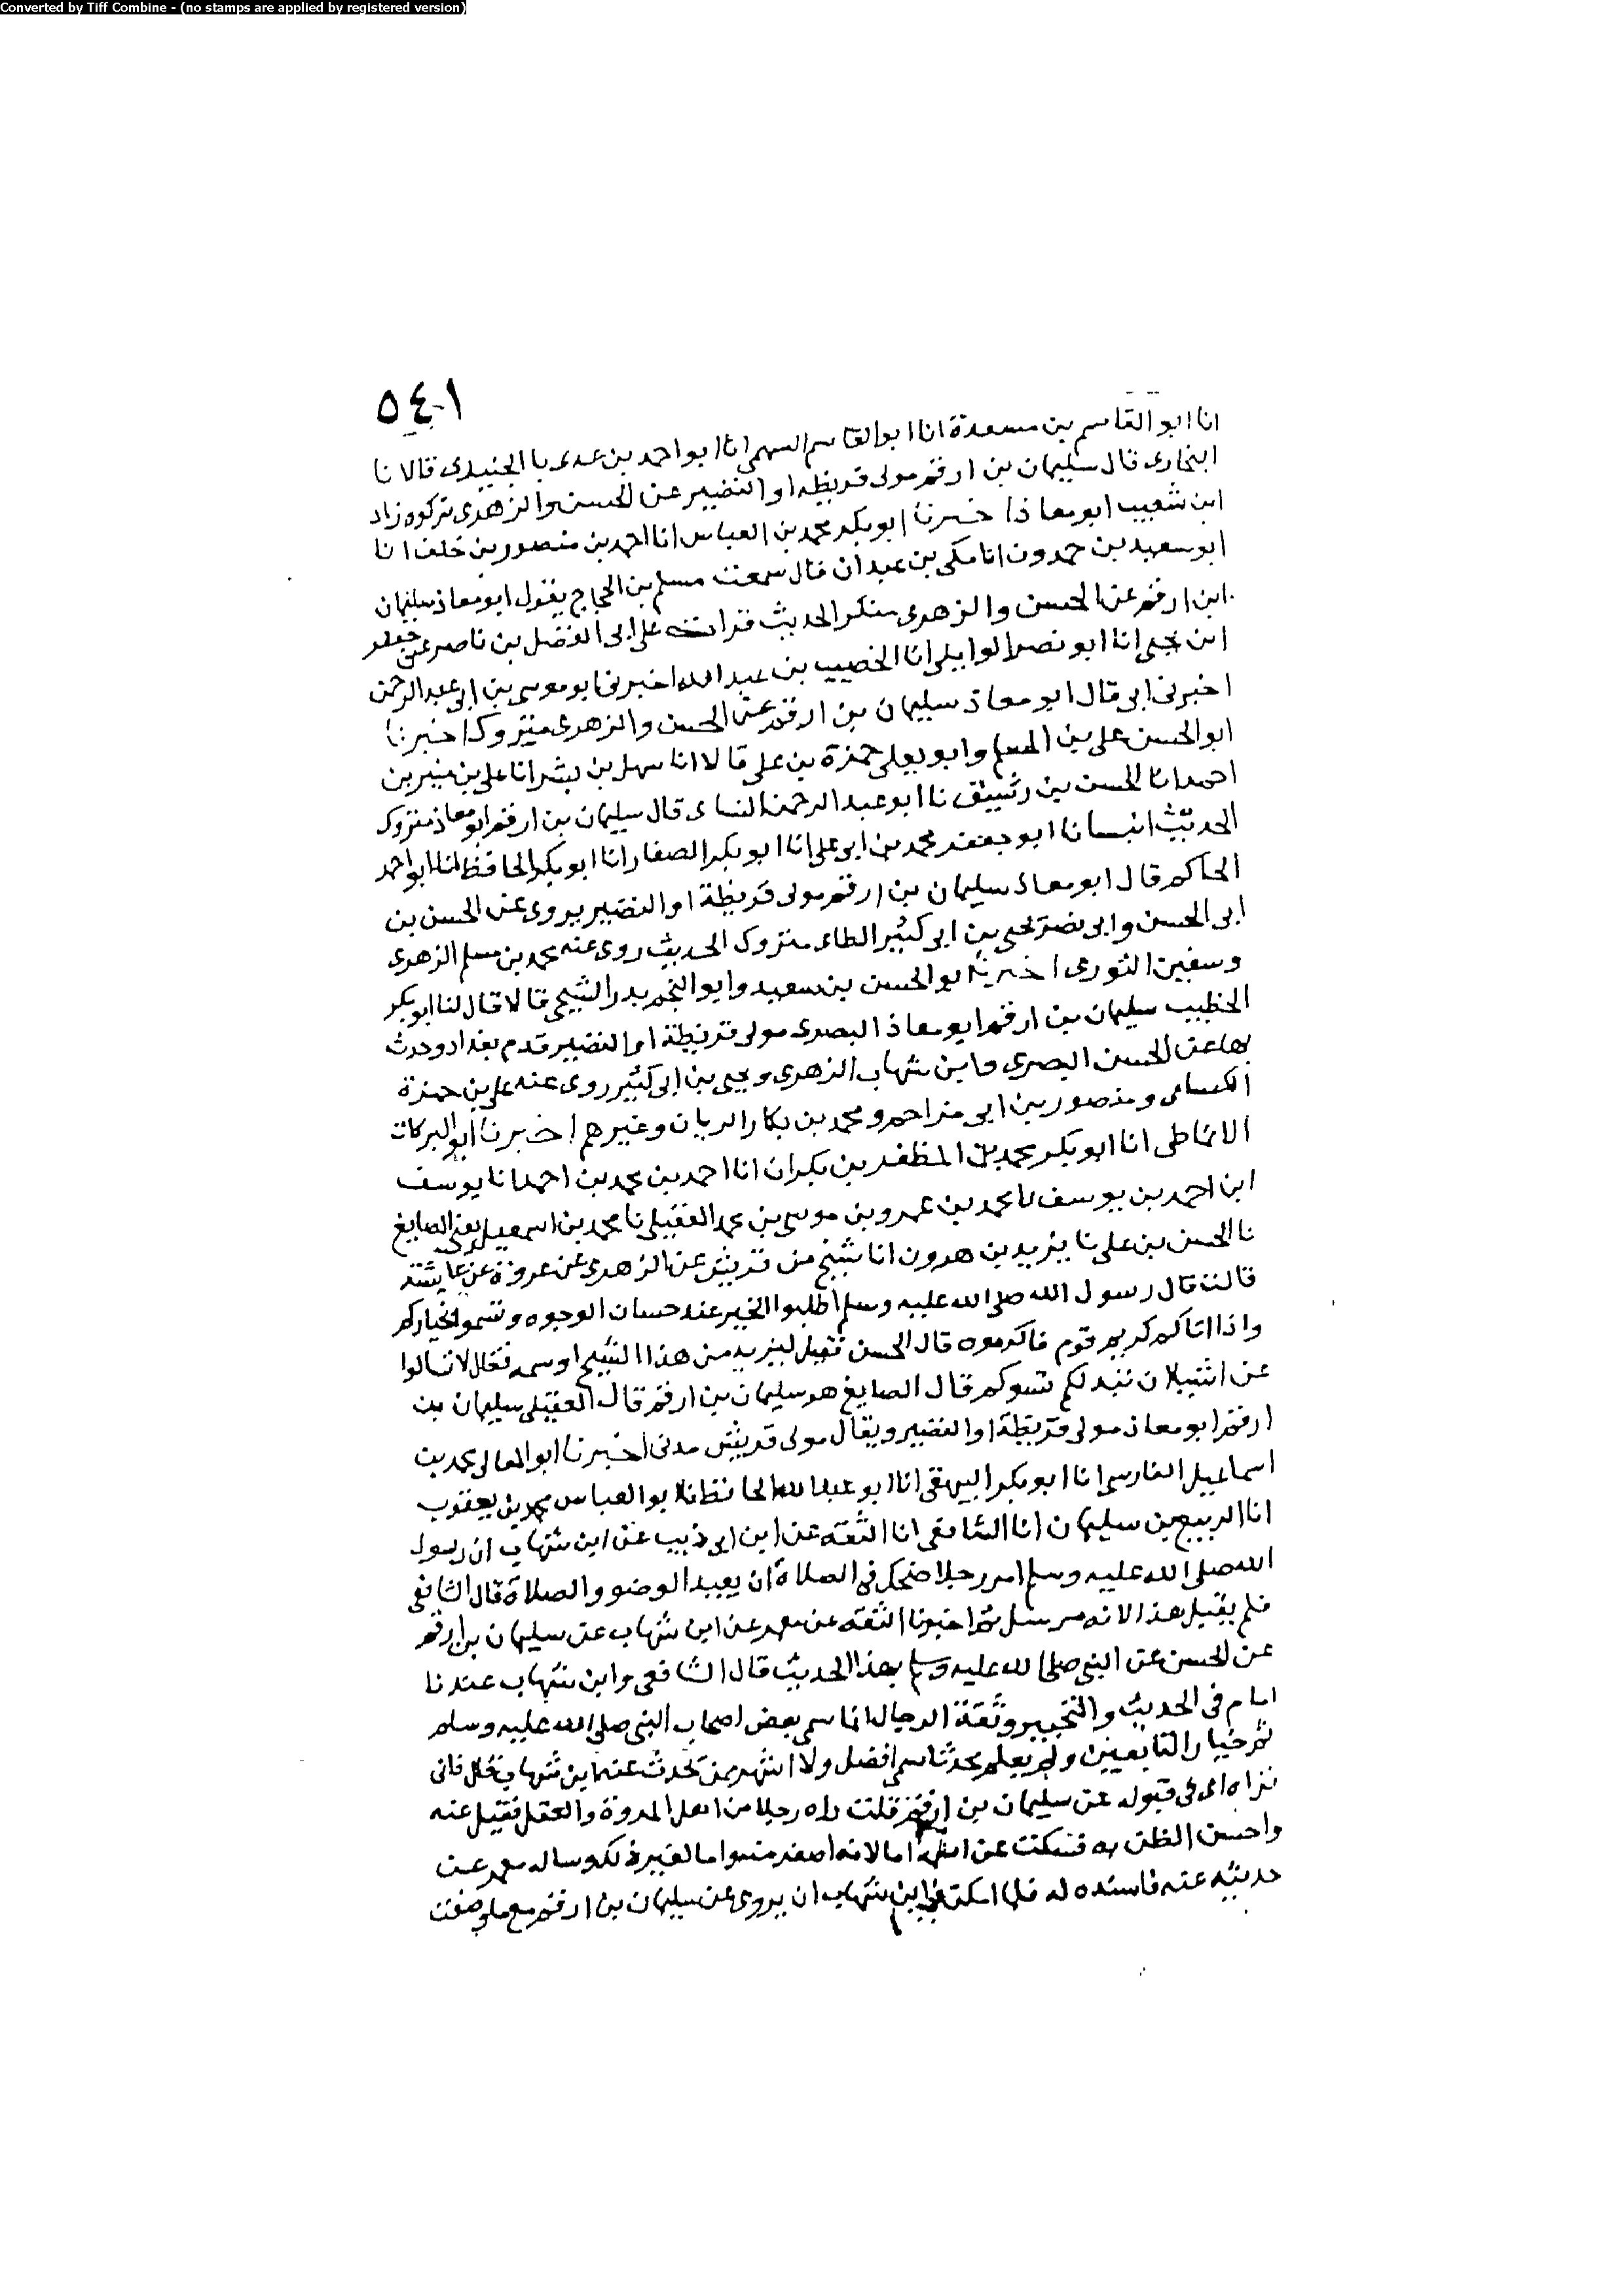 Converted by Tiff Combine - (no stamps are applied by registered version)
٥٤١
انا ابو القاسم بن مسعدة انا ابو القاسم السهمي انا ابو احمد بن عدى نا الجنيدى قالا نا
البخارى قال سليمان بن ارقم مولى قريظه او النضير عن الحسن والزهدى تركوه زاد
ابن شعيب ابو معاذ اخبرنا ابو بكر محمد بن العباس انا احمد بن منصور بن خلف انا
ابو سعيد بن حمدون انا مكى بن عبدان قال سمعت مسلم بن الحجاج يقول ابو معاذ سليمان
ابن ارقم عن الحسن والزهدى منكر الحديث قرات على ابى الفضل بن ناصر عن جعفر
ابن يحيى انا ابو نصر الوايلى انا الخصيب بن عبد الله اخبرنى ابو موسى بن ابى عبد الرحمن
اخبرنى ابى قال ابو معاذ سليمان بن ارقم عن الحسن والزهدى متروك اخبرنا
ابو الحسن على بن المسلم وابو يعلى حمزة بن على قالا انا سهل بن بشر انا على بن منير بن
احمد انا الحسن بن رشيق نا ابو عبد الرحمن النساى قال سليمان بن ارقم ابو معاذ متروك
الحديث انبانا ابو جعفر محمد بن ابى على انا ابو بكر الصفار انا ابو بكر الحافظ انا ابو احمد
الحاكم قال ابو معاذ سليمان بن ارقم مولى قريظة او النضير يروى عن الحسن بن
ابى الحسن وابى نضر يحيى بن ابى كثير الطاى متروك الحديث روى عنه محمد بن مسلم الزهرى
وسفين الثورى اخبرنا ابو الحسن بن سعيد وابو النجم بدر الشيحى قالا قال لنا ابو بكر
الخطيب سليمان بن ارقم ابو معاذ البصرى مولى قريظة او النضير قدم بغداد وحدث
بها عن الحسن البصرى وابن شهاب الزهرى ويحيى بن ابى كثير روى عنه على بن حمزة
الكساى ومنصور بن ابى مزاحم ومحمد بن بكار الريان وغيرهم اخبرنا ابو البركات
الانماطى انا ابو بكر محمد بن المظفر بن بكران انا احمد بن محمد بن احمد انا يوسف
ابن احمد بن يوسف نا محمد بن عمرو بن موسى بن محمد العقيلى نا محمد بن اسمعيل يعنى الصايغ
نا الحسن بن على نا يزيد بن هرون انا شيخ من قريش عن الزهدى عن عروة عن عايشة
قالت قال رسول الله صلى الله عليه وسلم اطلبوا الخير عند حسان الوجوه وتسموا بخياركم
واذا اتاكم كريم قوم فاكرموه قال الحسن فقيل ليزيد من هذا الشيخ او سمه فقال لا تسالوا
عن اشيا ان تبد لكم تسوكم قال الصايغ هو سليمان بن ارقم قال العقيلى سليمان بن
ارقم ابو معاذ مولى قريظة او النضير ويقال مولى قريش مدنى اخبرنا ابو المعالى محمد بن
اسماعيل الفارسى انا ابو بكر البيهقى انا ابو عبد الله الحافظ نا ابو العباس محمد بن يعقوب
انا الربيع بن سليمان انا الشافعى انا الثقه عن ابن ابى ذيب عن ابن شهاب ان رسول
الله صلى الله عليه وسلم امر رجلا ضحك فى الصلاة ان يعيد الوضو والصلاة قال الشافعى
فلم يقبل هذا لانه مرسل ثم اخبرنا الثقه عن معمر عن ابن شهاب عن سليمان بن ارقم
عن الحسن عن النبى صلى الله عليه وسلم بهذا الحديث قال الشافعى وابن شهاب عندنا
امام فى الحديث والتخيير وثقة الرجال انما سمى بعض اصحاب النبى صلى الله عليه وسلم
ثم خيار التابعين ولم يعلم محدثا سمى افضل ولا اشهر ممن تحدث عنه ابن شهاب قال فانى
تراه اى فى قبوله عن سليمان بن ارقم قلت راه رجلا من اهل المروة والعقل فقبل عنه
واحسن الظن به فسكت عن اسمه اما لانه اصغر منه واما لغير ذلك وساله معمر عن
حديثه عنه فاسنده له فلما امكن فى ابن شهاب ان يروى عن سليمان بن ارقم مع ما وصفت